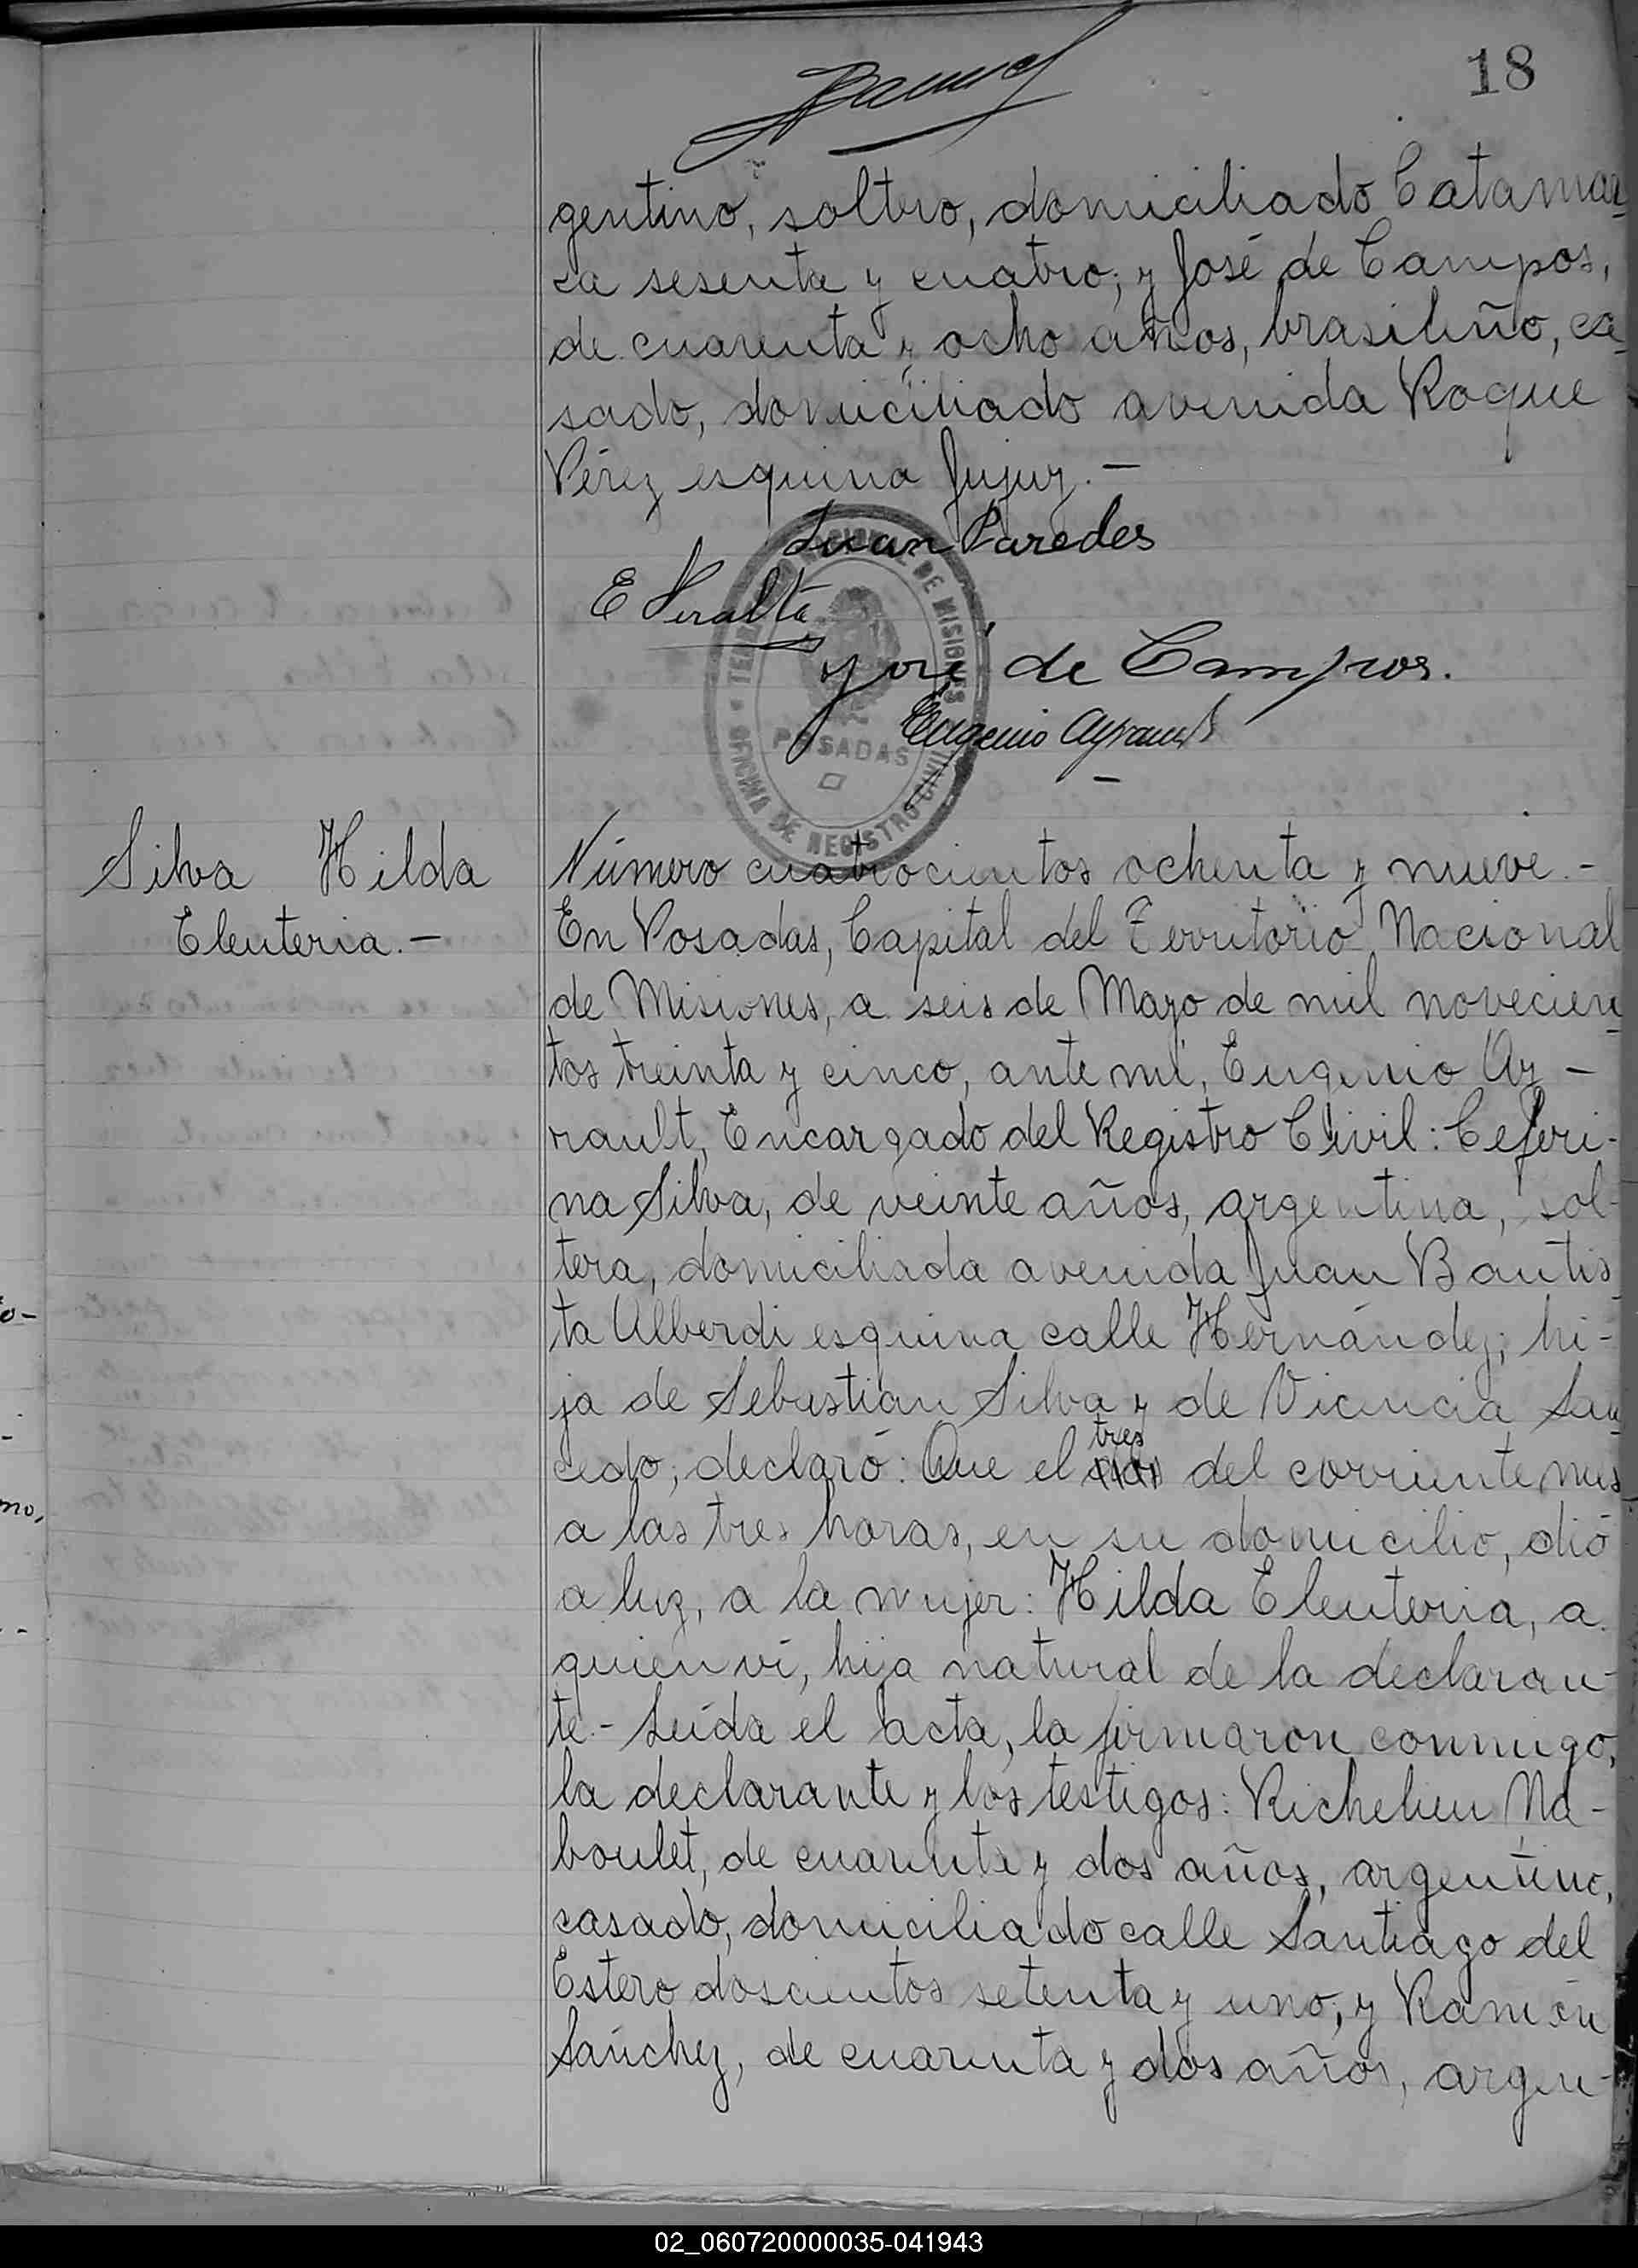 18
gentino, soltero, domiciliado Catamar-
ca sesenta y cuatro; y José de Campos,
de cuarenta y ocho años, brasileño, ca-
sado, domiciliado avenida Roque
Pérez esquina Jujuy.—
Juan Paredes
E Peralta
José de Campos.
Eugenio Ayrault
TERRITORIO NACIONAL DE MISIONES
POSADAS
OFICINA DE REGISTRO CIVIL
Silva Hilda
Eleuteria.—
Número cuatrocientos ochenta y nueve.-
En Posadas, Capital del Territorio Nacional
de Misiones, a seis de Mayo de mil novecien-
tos treinta y cinco, ante mí, Eugenio Ay-
rault, Encargado del Registro Civil: Ceferi-
na Silva, de veinte años, argentina, sol-
tera, domiciliada avenida Juan Bautis-
ta Alberdi esquina calle Hernández; hi-
ja de Sebastian Silva y de Vicencia Sau-
cedo; declaró: Que el tres del corriente mes
a las tres horas, en su domicilio, dió
a luz, a la mujer: Hilda Eleuteria, a
quien ví, hija natural de la declaran-
te.- Leída el acta, la firmaron conmigo,
la declarante y los testigos: Richelieu Na-
boulet, de cuarenta y dos años, argentino,
casado, domiciliado calle Santiago del
Estero doscientos setenta y uno; y Ramón
Sánchez, de cuarenta y dos años, argen-
02_060720000035-041943